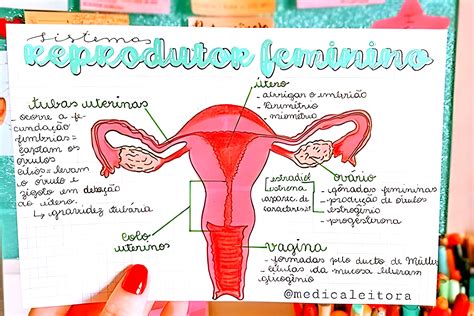 sistemas
reprodutor feminino
tubas uterinas
- ocorre a fe
cundação
fímbrias =
captam os
óvulos
cílios = levam
o óvulo e
zigoto em
ao útero.
↳ gravidez tubária
útero
- abrigar o embrião
- perimétrio
- miométrio
ovário
- gônadas femininas
- produção de óvulos
- estrogênio
- progesterona
- estradiol
estrona
caracteres
colo
uterino
vagina
- formadas pelo ducto de Müller
- células da mucosa liberam
glicogênio
@medicaleitora